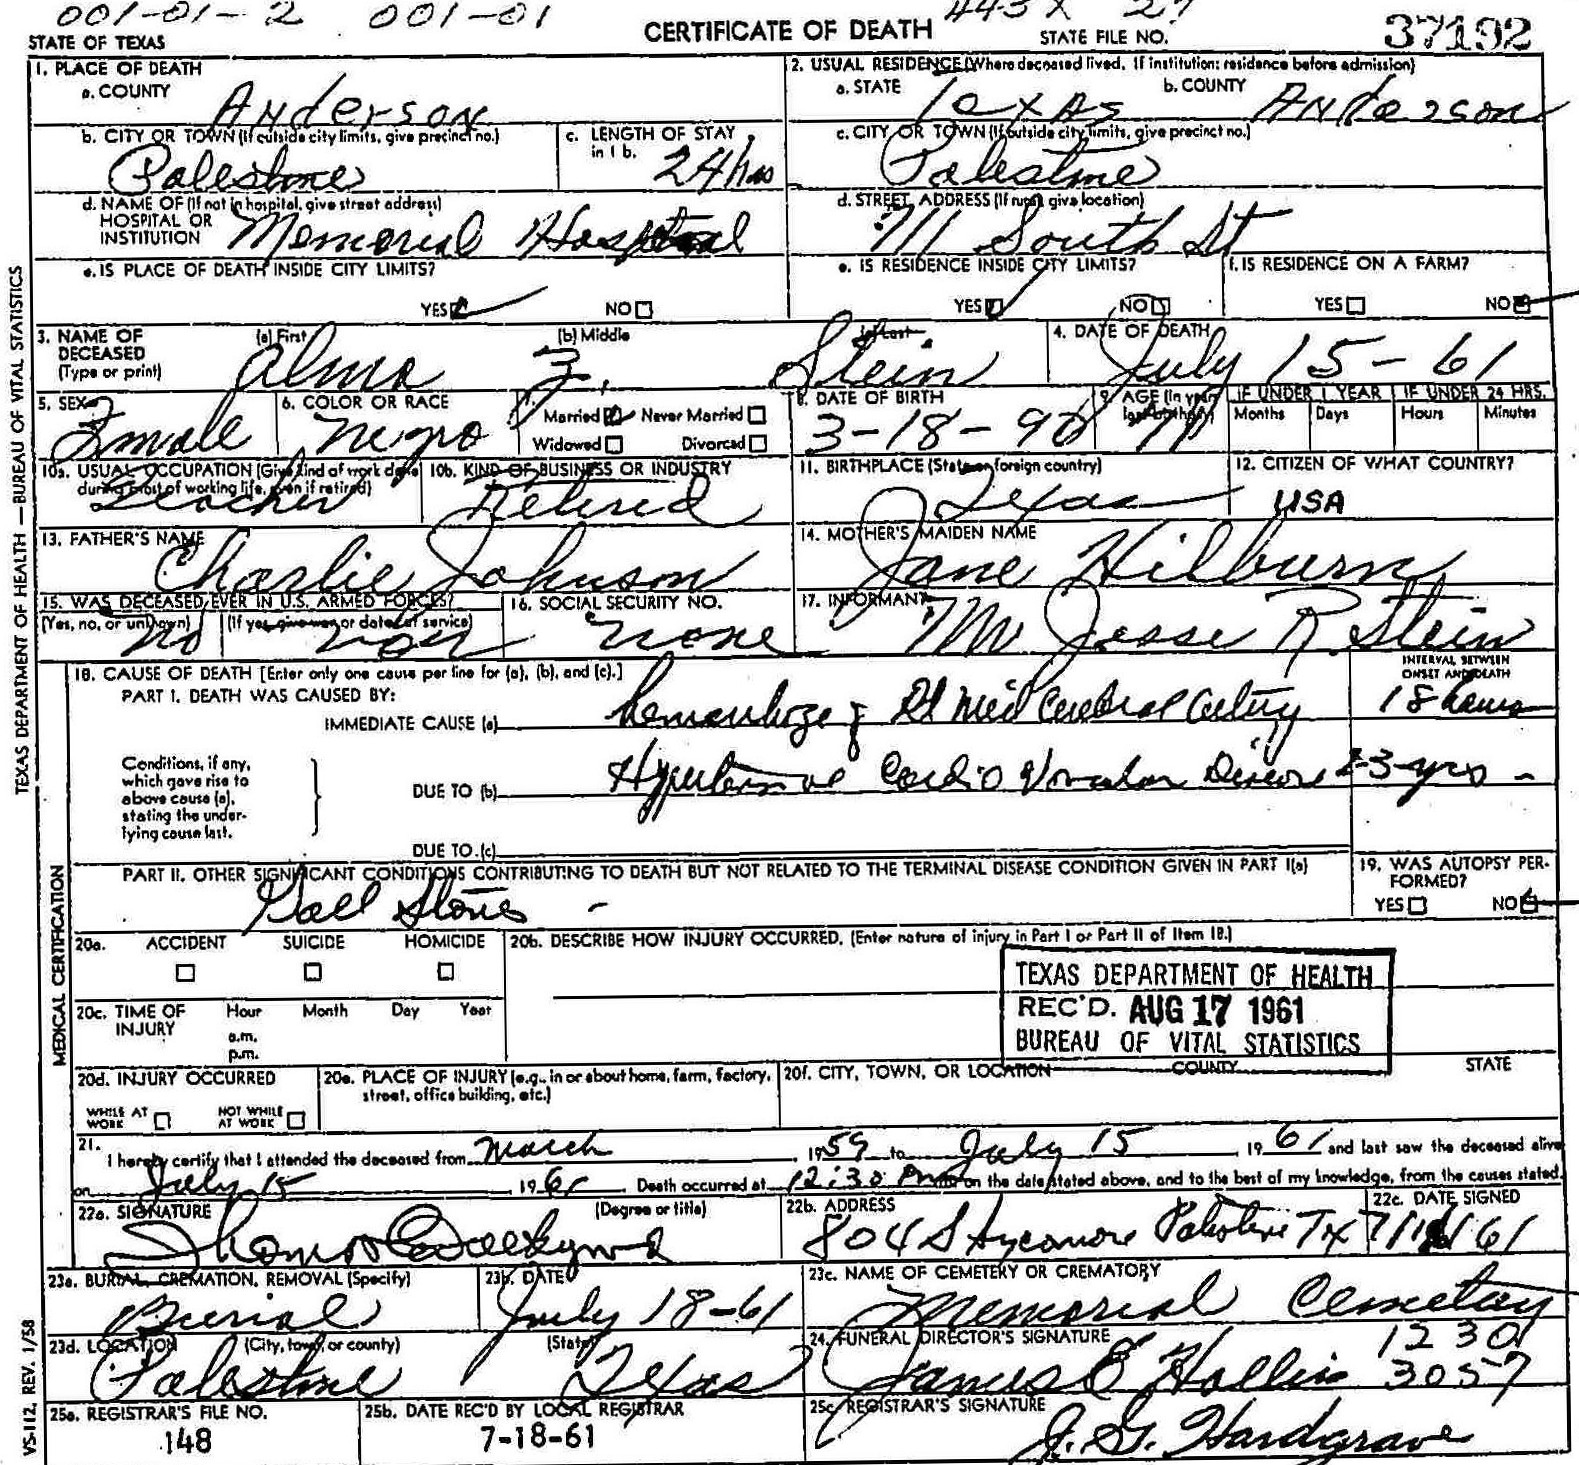 001-01-2 001-01 443X 27
CERTIFICATE OF DEATH
STATE OF TEXAS STATE FILE NO. 37192
1. PLACE OF DEATH
a. COUNTY Anderson
2. USUAL RESIDENCE (Where deceased lived. If institution: residence before admission)
a. STATE Texas b. COUNTY Anderson
b. CITY OR TOWN (If outside city limits, give precinct no.) Palestine
c. LENGTH OF STAY in 1 b. 24 hrs
c. CITY OR TOWN (If outside city limits, give precinct no.) Palestine
d. NAME OF (If not in hospital, give street address) HOSPITAL OR INSTITUTION Memorial Hospital
d. STREET ADDRESS (If rural give location) 711 South St
e. IS PLACE OF DEATH INSIDE CITY LIMITS?
YES NO
e. IS RESIDENCE INSIDE CITY LIMITS?
YES NO
f. IS RESIDENCE ON A FARM?
YES NO
3. NAME OF DECEASED (Type or print)
(a) First Alma (b) Middle Z. (c) Last Stein
4. DATE OF DEATH July 15-61
5. SEX Female
6. COLOR OR RACE Negro
7. Married Never Married
Widowed Divorced
8. DATE OF BIRTH 3-18-90
9. AGE (In years last birthday)
IF UNDER 1 YEAR Months Days
IF UNDER 24 HRS. Hours Minutes
10a. USUAL OCCUPATION (Give kind of work done during most of working life, even if retired) Teacher
10b. KIND OF BUSINESS OR INDUSTRY Retired
11. BIRTHPLACE (State or foreign country) Texas
12. CITIZEN OF WHAT COUNTRY? USA
13. FATHER'S NAME Charlie Johnson
14. MOTHER'S MAIDEN NAME Jane Hilburn
15. WAS DECEASED EVER IN U.S. ARMED FORCES?
(Yes, no, or unknown) no (If yes, give war or dates of service)
16. SOCIAL SECURITY NO. none
17. INFORMANT Mr Jesse R. Stein
18. CAUSE OF DEATH [Enter only one cause per line for (a), (b), and (c).]
INTERVAL BETWEEN ONSET AND DEATH
PART I. DEATH WAS CAUSED BY:
IMMEDIATE CAUSE (a) hemorrhage of Rt Mid Cerebral Artery 18 hours
Conditions, if any, which gave rise to above cause (a), stating the underlying cause last.
DUE TO (b) Hypertensive Cardio Vascular Disease 2-3-yrs -
DUE TO (c)
PART II. OTHER SIGNIFICANT CONDITIONS CONTRIBUTING TO DEATH BUT NOT RELATED TO THE TERMINAL DISEASE CONDITION GIVEN IN PART I(a)
Gall Stones -
19. WAS AUTOPSY PERFORMED?
YES NO
20a. ACCIDENT SUICIDE HOMICIDE
20b. DESCRIBE HOW INJURY OCCURRED. (Enter nature of injury in Part I or Part II of Item 18.)
TEXAS DEPARTMENT OF HEALTH
REC'D. AUG 17 1961
BUREAU OF VITAL STATISTICS
20c. TIME OF INJURY Hour Month Day Year
a.m.
p.m.
20d. INJURY OCCURRED
WHILE AT WORK NOT WHILE AT WORK
20e. PLACE OF INJURY (e.g., in or about home, farm, factory, street, office building, etc.)
20f. CITY, TOWN, OR LOCATION COUNTY STATE
21. I hereby certify that I attended the deceased from March, 1959 to July 15 1961 and last saw the deceased alive
on July 15, 1961. Death occurred at 12:30 Pm on the date stated above, and to the best of my knowledge, from the causes stated.
22a. SIGNATURE (Degree or title)
22b. ADDRESS 804 S Sycamore Palestine Tx
22c. DATE SIGNED
23a. BURIAL, CREMATION, REMOVAL (Specify) Burial
23b. DATE July 18-61
23c. NAME OF CEMETERY OR CREMATORY Memorial Cemetary
23d. LOCATION (City, town, or county) (State) Palestine Texas
24. FUNERAL DIRECTOR'S SIGNATURE James E Hollis 1230
3057
25a. REGISTRAR'S FILE NO. 148
25b. DATE REC'D BY LOCAL REGISTRAR 7-18-61
25c. REGISTRAR'S SIGNATURE J. G. Hardgrave
TEXAS DEPARTMENT OF HEALTH — BUREAU OF VITAL STATISTICS
MEDICAL CERTIFICATION
VS-112, REV. 1/58